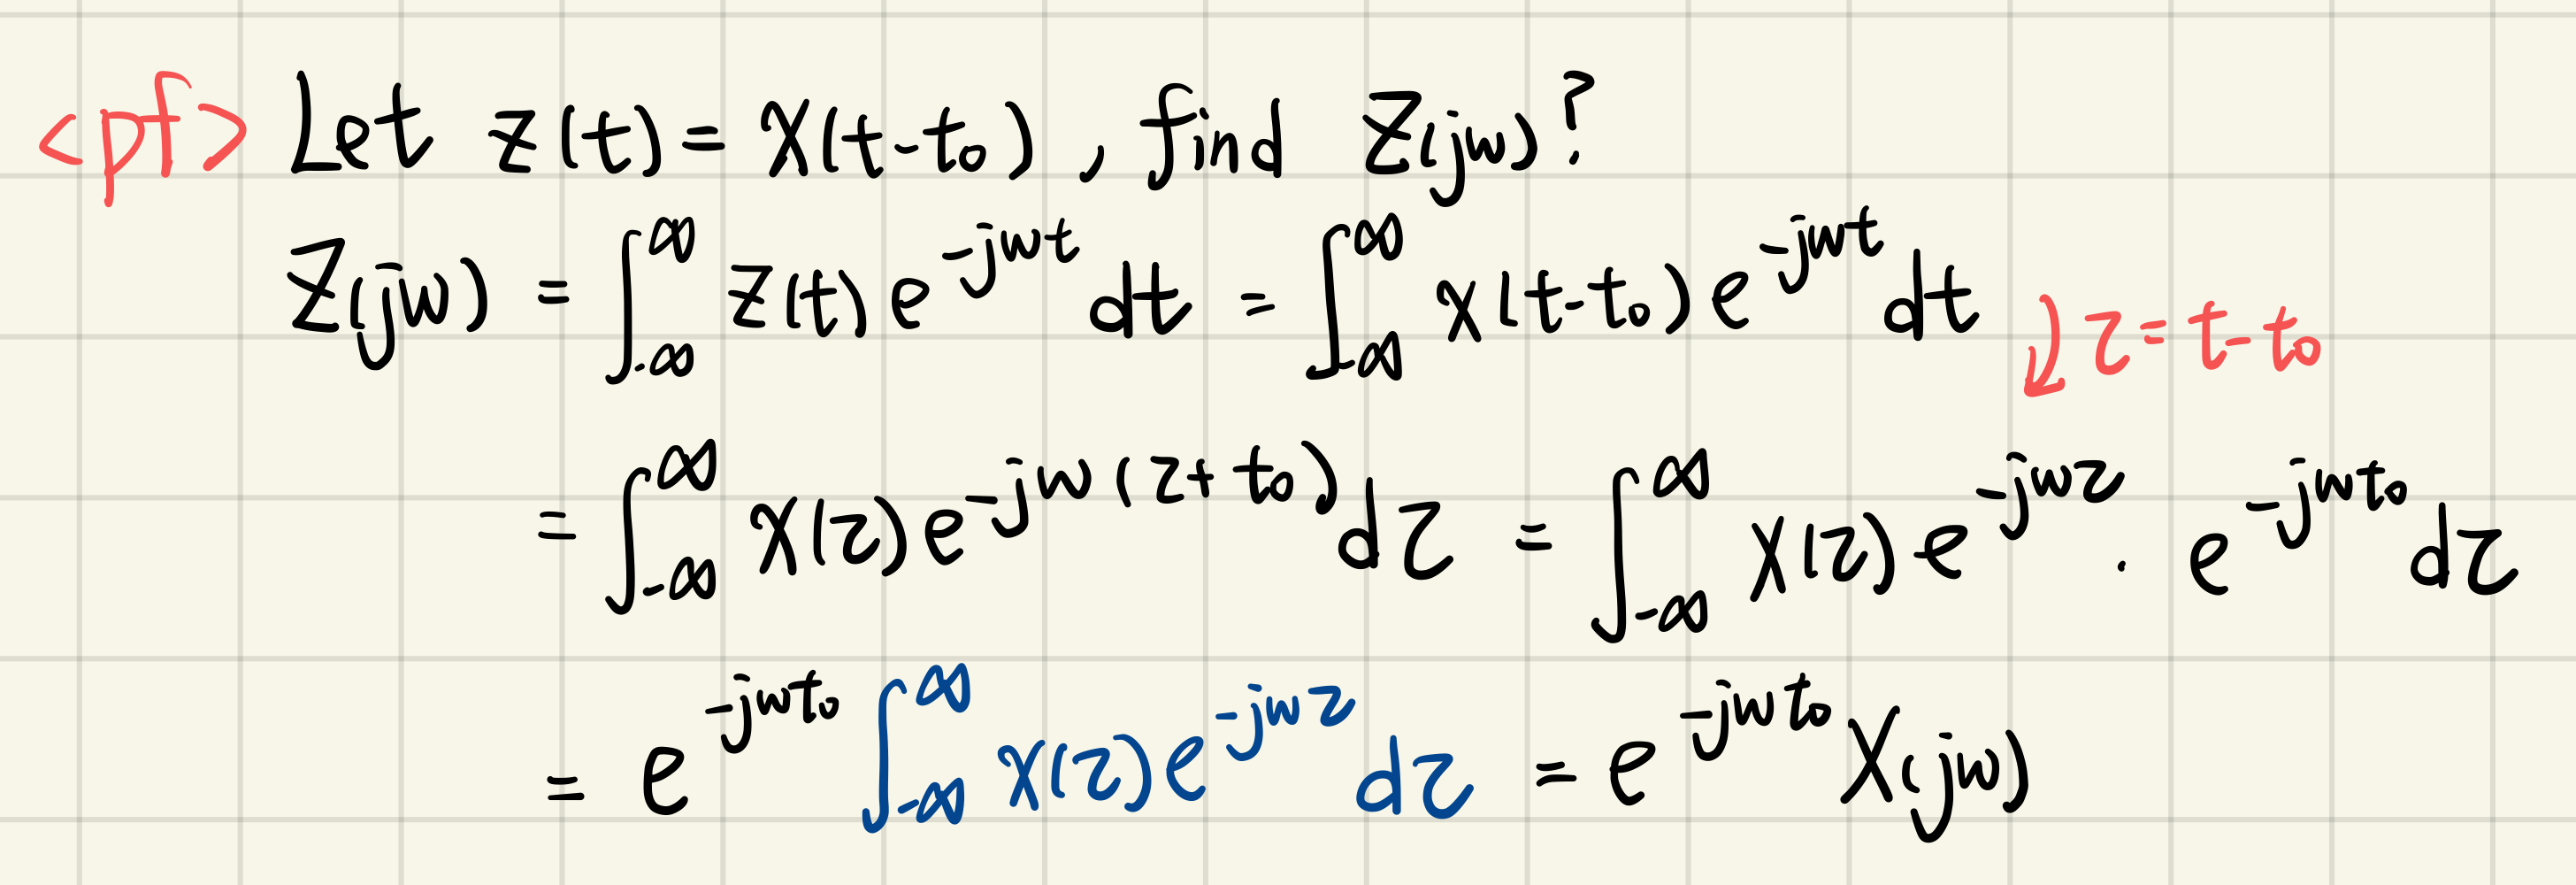 <pf> Let z(t) = x(t-t₀), find Z(jω)?
Z(jω) = ∫_{-∞}^{∞} z(t) e^{-jωt} dt = ∫_{-∞}^{∞} x(t-t₀) e^{-jωt} dt
τ = t-t₀
= ∫_{-∞}^{∞} x(τ) e^{-jω(τ+t₀)} dτ = ∫_{-∞}^{∞} x(τ) e^{-jωτ} · e^{-jωt₀} dτ
= e^{-jωt₀} ∫_{-∞}^{∞} x(τ) e^{-jωτ} dτ = e^{-jωt₀} X(jω)